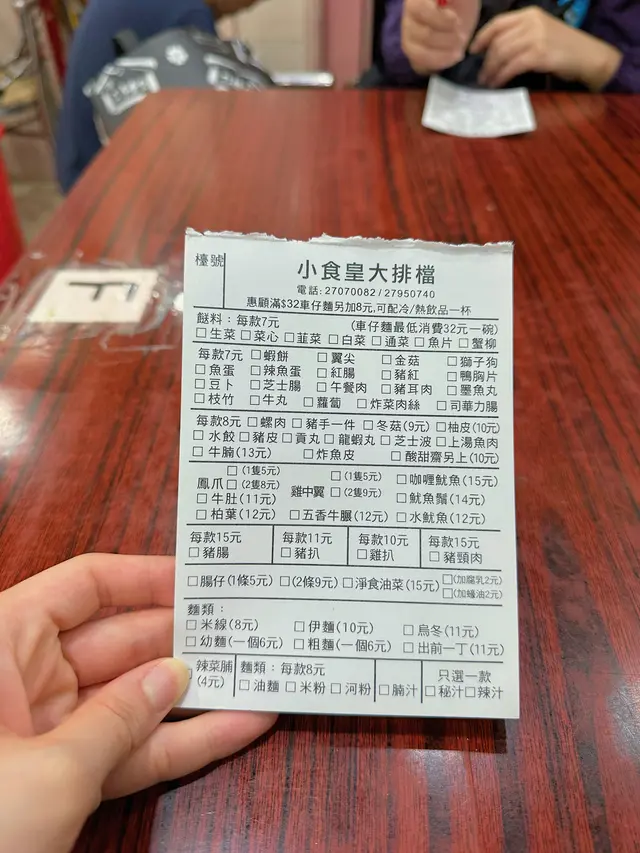 檯號
小食皇大排檔
電話: 27070082 / 27950740
惠顧滿$32車仔麵另加8元,可配冷/熱飲品一杯
餸料：每款7元 (車仔麵最低消費32元一碗)
□生菜 □菜心 □韮菜 □白菜 □通菜 □魚片 □蟹柳
每款7元 □蝦餅 □翼尖 □金菇 □獅子狗
□魚蛋 □辣魚蛋 □紅腸 □豬紅 □鴨胸片
□豆卜 □芝士腸 □午餐肉 □豬耳肉 □墨魚丸
□枝竹 □牛丸 □蘿蔔 □炸菜肉絲 □司華力腸
每款8元 □螺肉 □豬手一件 □冬菇(9元) □柚皮(10元)
□水餃 □豬皮 □貢丸 □龍蝦丸 □芝士波 □上湯魚肉
□牛腩(13元) □炸魚皮 □酸甜齋另上(10元)
鳳爪 □(1隻5元) □(2隻8元) 雞中翼 □(1隻5元) □(2隻9元) □咖喱魷魚(15元)
□牛肚(11元) □魷魚鬚(14元)
□柏葉(12元) □五香牛𦟌(12元) □水魷魚(12元)
每款15元 每款11元 每款10元 每款15元
□豬腸 □豬扒 □雞扒 □豬頸肉
□腸仔(1條5元) □(2條9元) □淨食油菜(15元) □(加腐乳2元)
□(加蠔油2元)
麵類：
□米線(8元) □伊麵(10元) □烏冬(11元)
□幼麵(一個6元) □粗麵(一個6元) □出前一丁(11元)
□辣菜脯 麵類：每款8元 只選一款
(4元) □油麵 □米粉 □河粉 □腩汁 □秘汁□辣汁
F